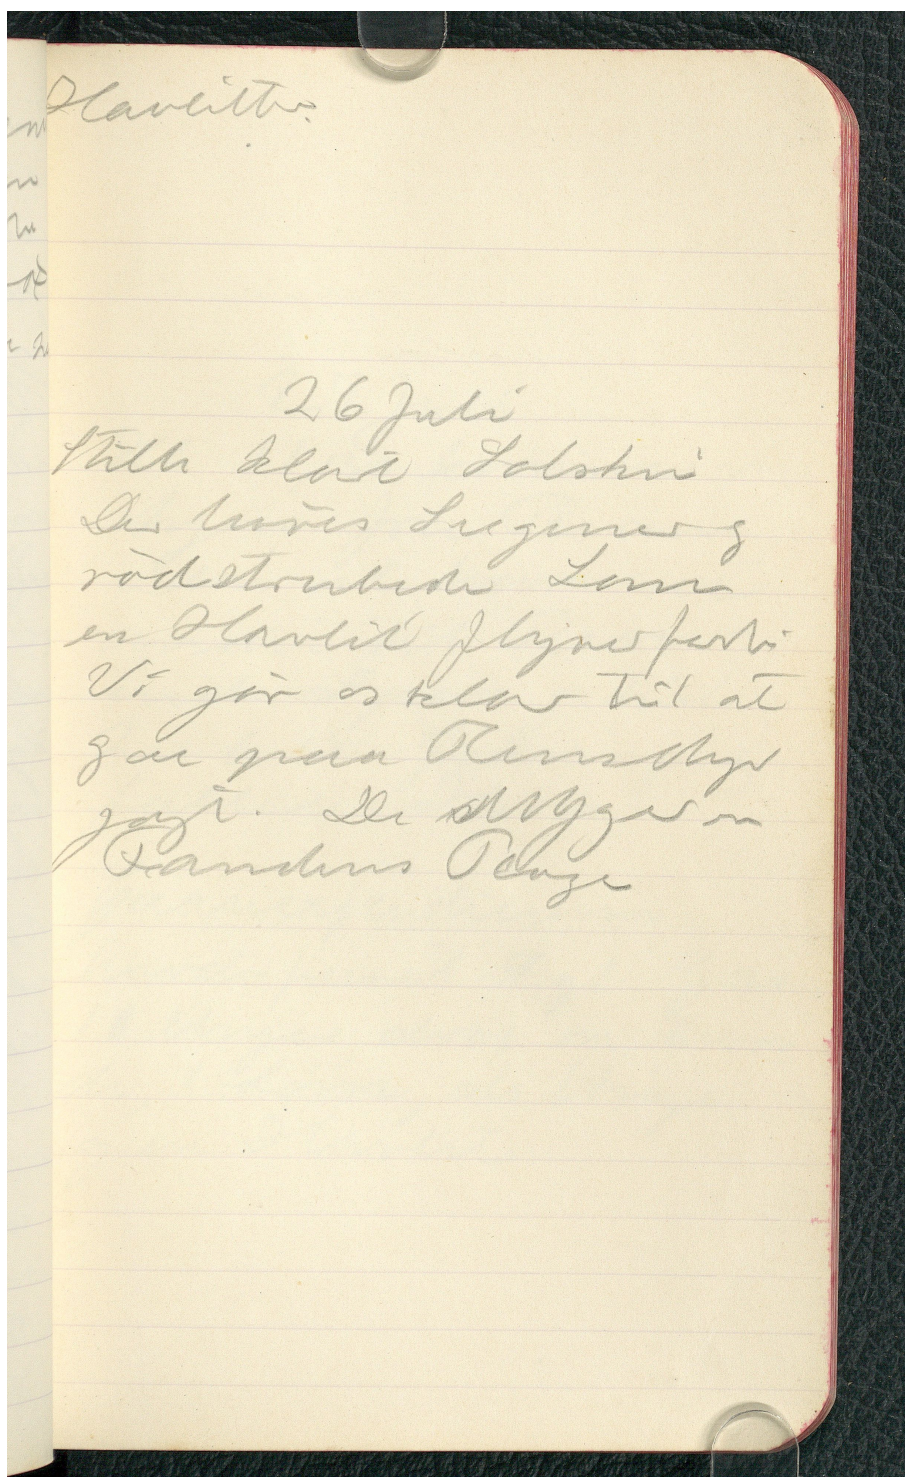 Havlitter.
26 Juli
Stille klart Solskin
Der høres Snegmer g
rödstrubede Lom
en Havlit flyver forbi
Vi gör os klar til at
gaa paa Rensdyr
jagt. De Mygger en
Fandens Plage